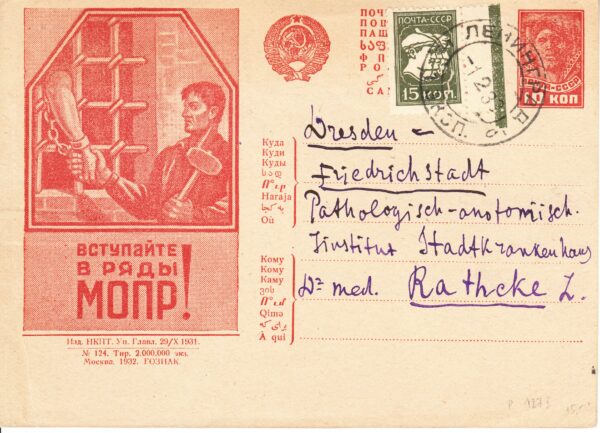 ВСТУПАЙТЕ
В РЯДЫ
МОПР!
Изд. НКПТ. Уп. Главл. 29/X 1931.
№ 124. Тир. 2.000.000 экз.
Москва. 1932. ГОЗНАК.
ПОЧТА·СССР
15 КОП
10 КОП
ЛЕНИНГРАД
Куда
Куди
Куды
Haraja
Où
Кому
Кому
Каму
Qimə
À qui
Dresden –
Friedrichstadt
Pathologisch-anatomisch.
Institut Stadtkrankenhaus
Dr med. Rathcke L.